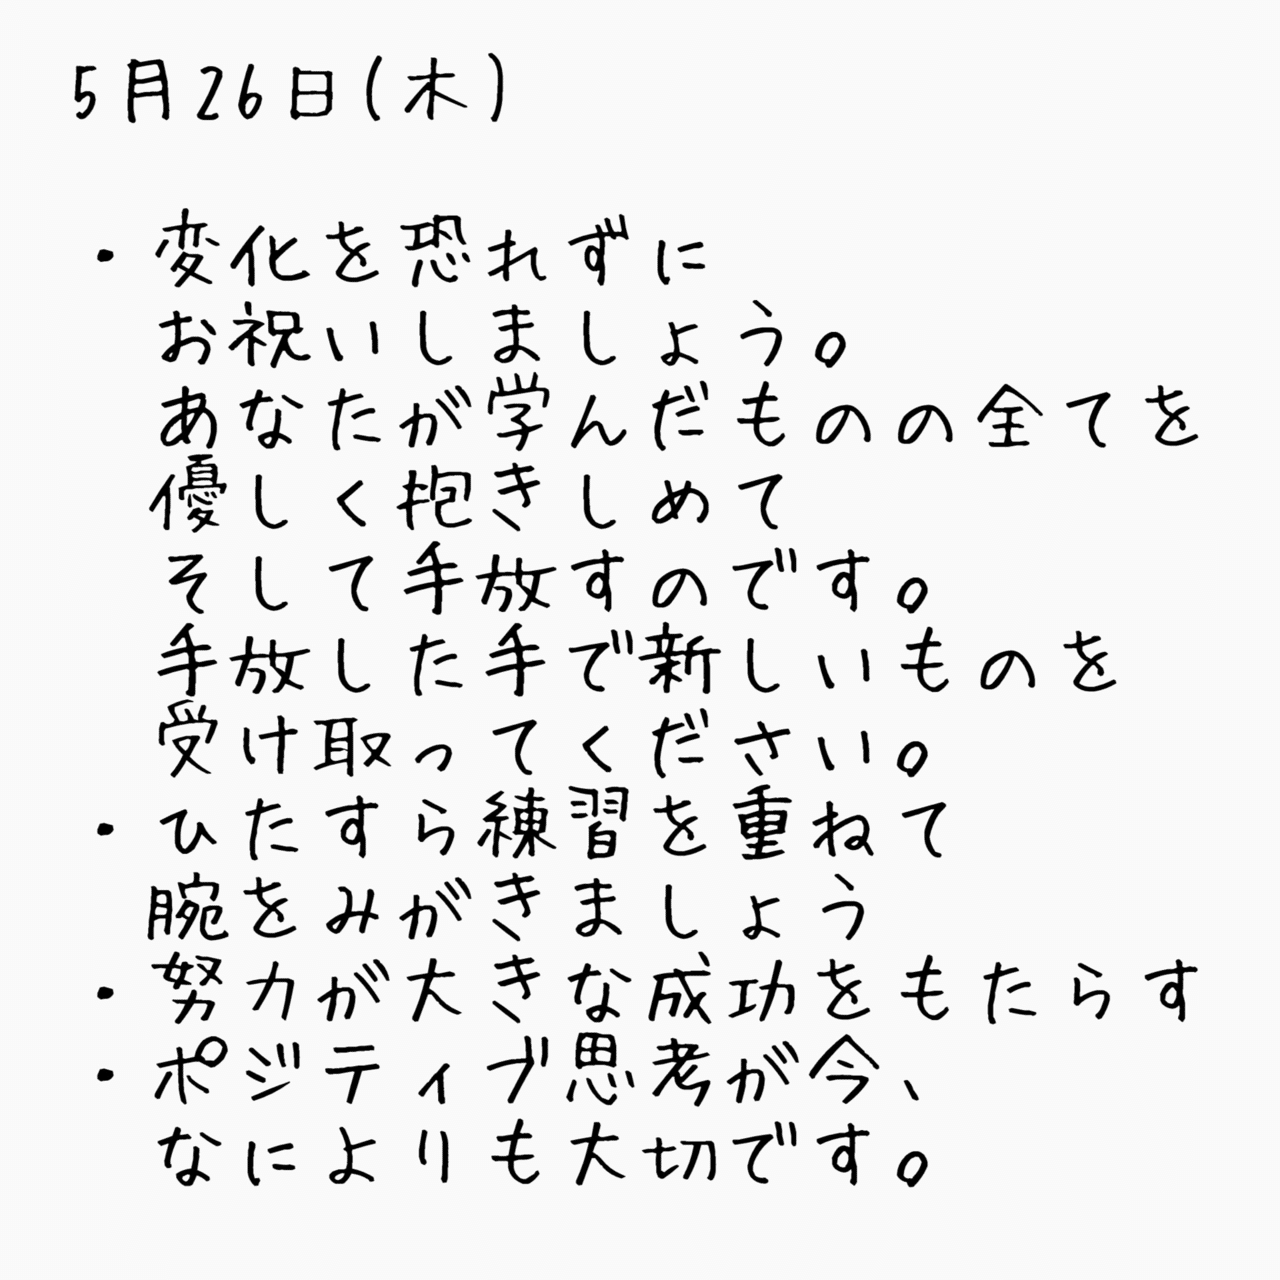 5月26日(木)
・変化を恐れずに
お祝いしましょう。
あなたが学んだものの全てを
優しく抱きしめて
そして手放すのです。
手放した手で新しいものを
受け取ってください。
・ひたすら練習を重ねて
腕をみがきましょう
・努力が大きな成功をもたらす
・ポジティブ思考が今、
なによりも大切です。